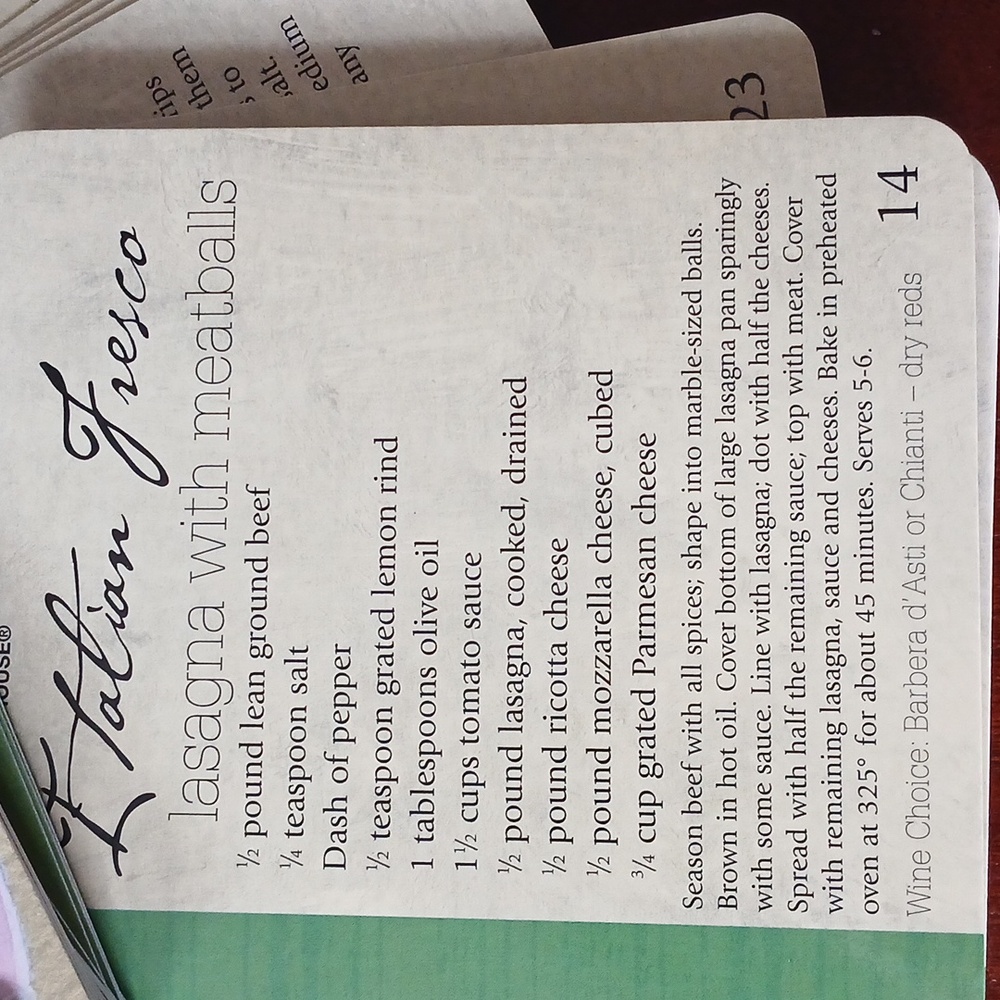 Italian Fresco
lasagna with meatballs
½ pound lean ground beef
¼ teaspoon salt
Dash of pepper
½ teaspoon grated lemon rind
1 tablespoons olive oil
1½ cups tomato sauce
½ pound lasagna, cooked, drained
½ pound ricotta cheese
½ pound mozzarella cheese, cubed
¾ cup grated Parmesan cheese
Season beef with all spices; shape into marble-sized balls.
Brown in hot oil. Cover bottom of large lasagna pan sparingly
with some sauce. Line with lasagna; dot with half the cheeses.
Spread with half the remaining sauce; top with meat. Cover
with remaining lasagna, sauce and cheeses. Bake in preheated
oven at 325° for about 45 minutes. Serves 5-6.
Wine Choice: Barbera d'Asti or Chianti – dry reds
14
them
to
any
23